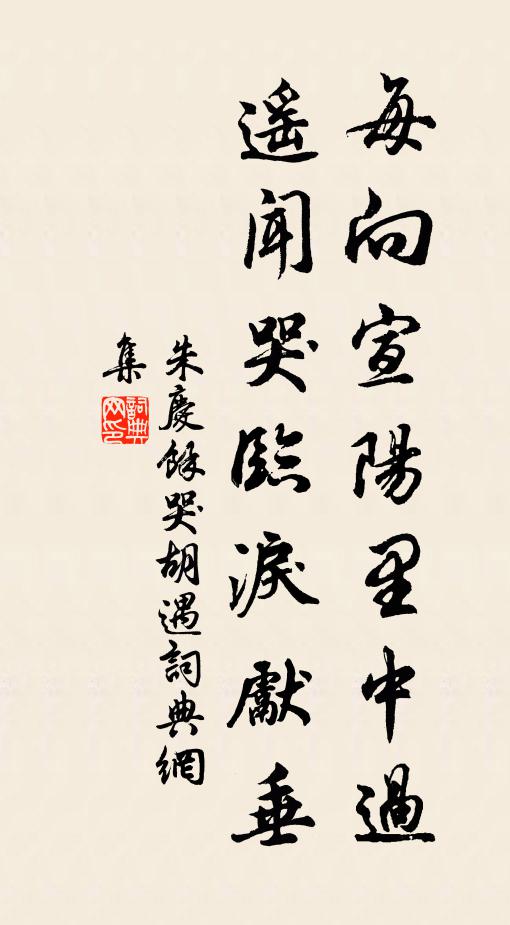 每向宣陽里中過
遙聞哭臨淚獻垂
朱慶餘哭胡遇詞典網
集
詞典
网印